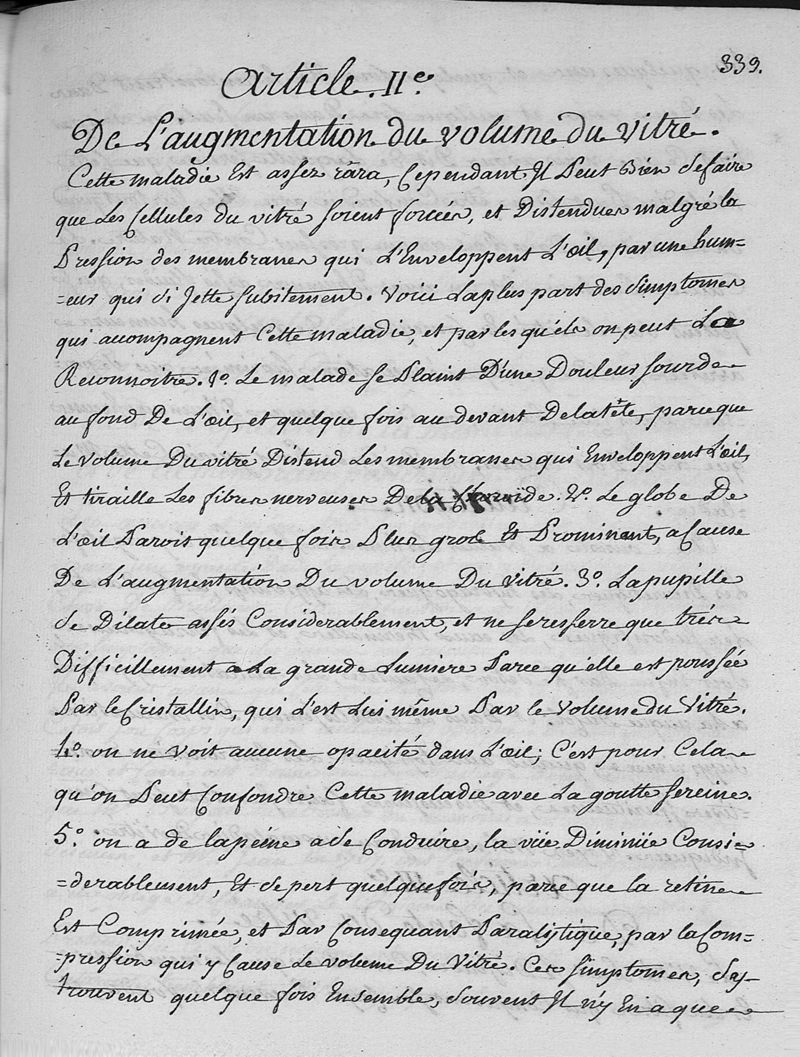 339.
Article. II.e
De L'augmentation du volume du vitré.
Cette maladie Est assez râra, Cependant Il Peut Bien se faire
que Les Cellules du vitré soient forcées, et Distendues malgré la
Pression des membranes qui L'Enveloppent L'œil, par une hum=
=eur qui si Jette subitement. Voici La plus part des simptomes
qui accompagnent Cette maladie, et par les qu'els on peut La
Reconnoitre. 1.º Le malade se Plaint D'une Douleur sourde
au fond De L'œil, et quelque fois au devant De la tête, parceque
Le volume Du vitré Distend Les membranes qui Enveloppent L'œil,
Et tiraille Les fibres nerveuses De la 2.º Le globe De
L'œil Paroit quelque fois Plus gros Et Prominent, a Cause
De L'augmentation Du volume Du vitré. 3.º La pupille
se Dilate assés Considerablement, et ne se resserre que très
Difficillement a La grande Lumiere Parce qu'elle est poussée
Par le Cristallin, qui L'est Lui même Par le volume du Vitré.
4.º on ne voit aucune opacité dans L'œil; C'est pour Cela
qu'on Peut Confondre Cette maladie avec La goutte sereine.
5.º on a de la peine a se Conduire, la vüe Diminüe Consi=
=derablement, Et se pert quelque fois, parce que la retine
Est Comprimée, et Par Consequant Paralytique, par la Com=
=pression qui y Cause Le volume Du Vitré. Ces simptomes, s'y
trouvent quelque fois Ensemble, souvent Il n'y En a que